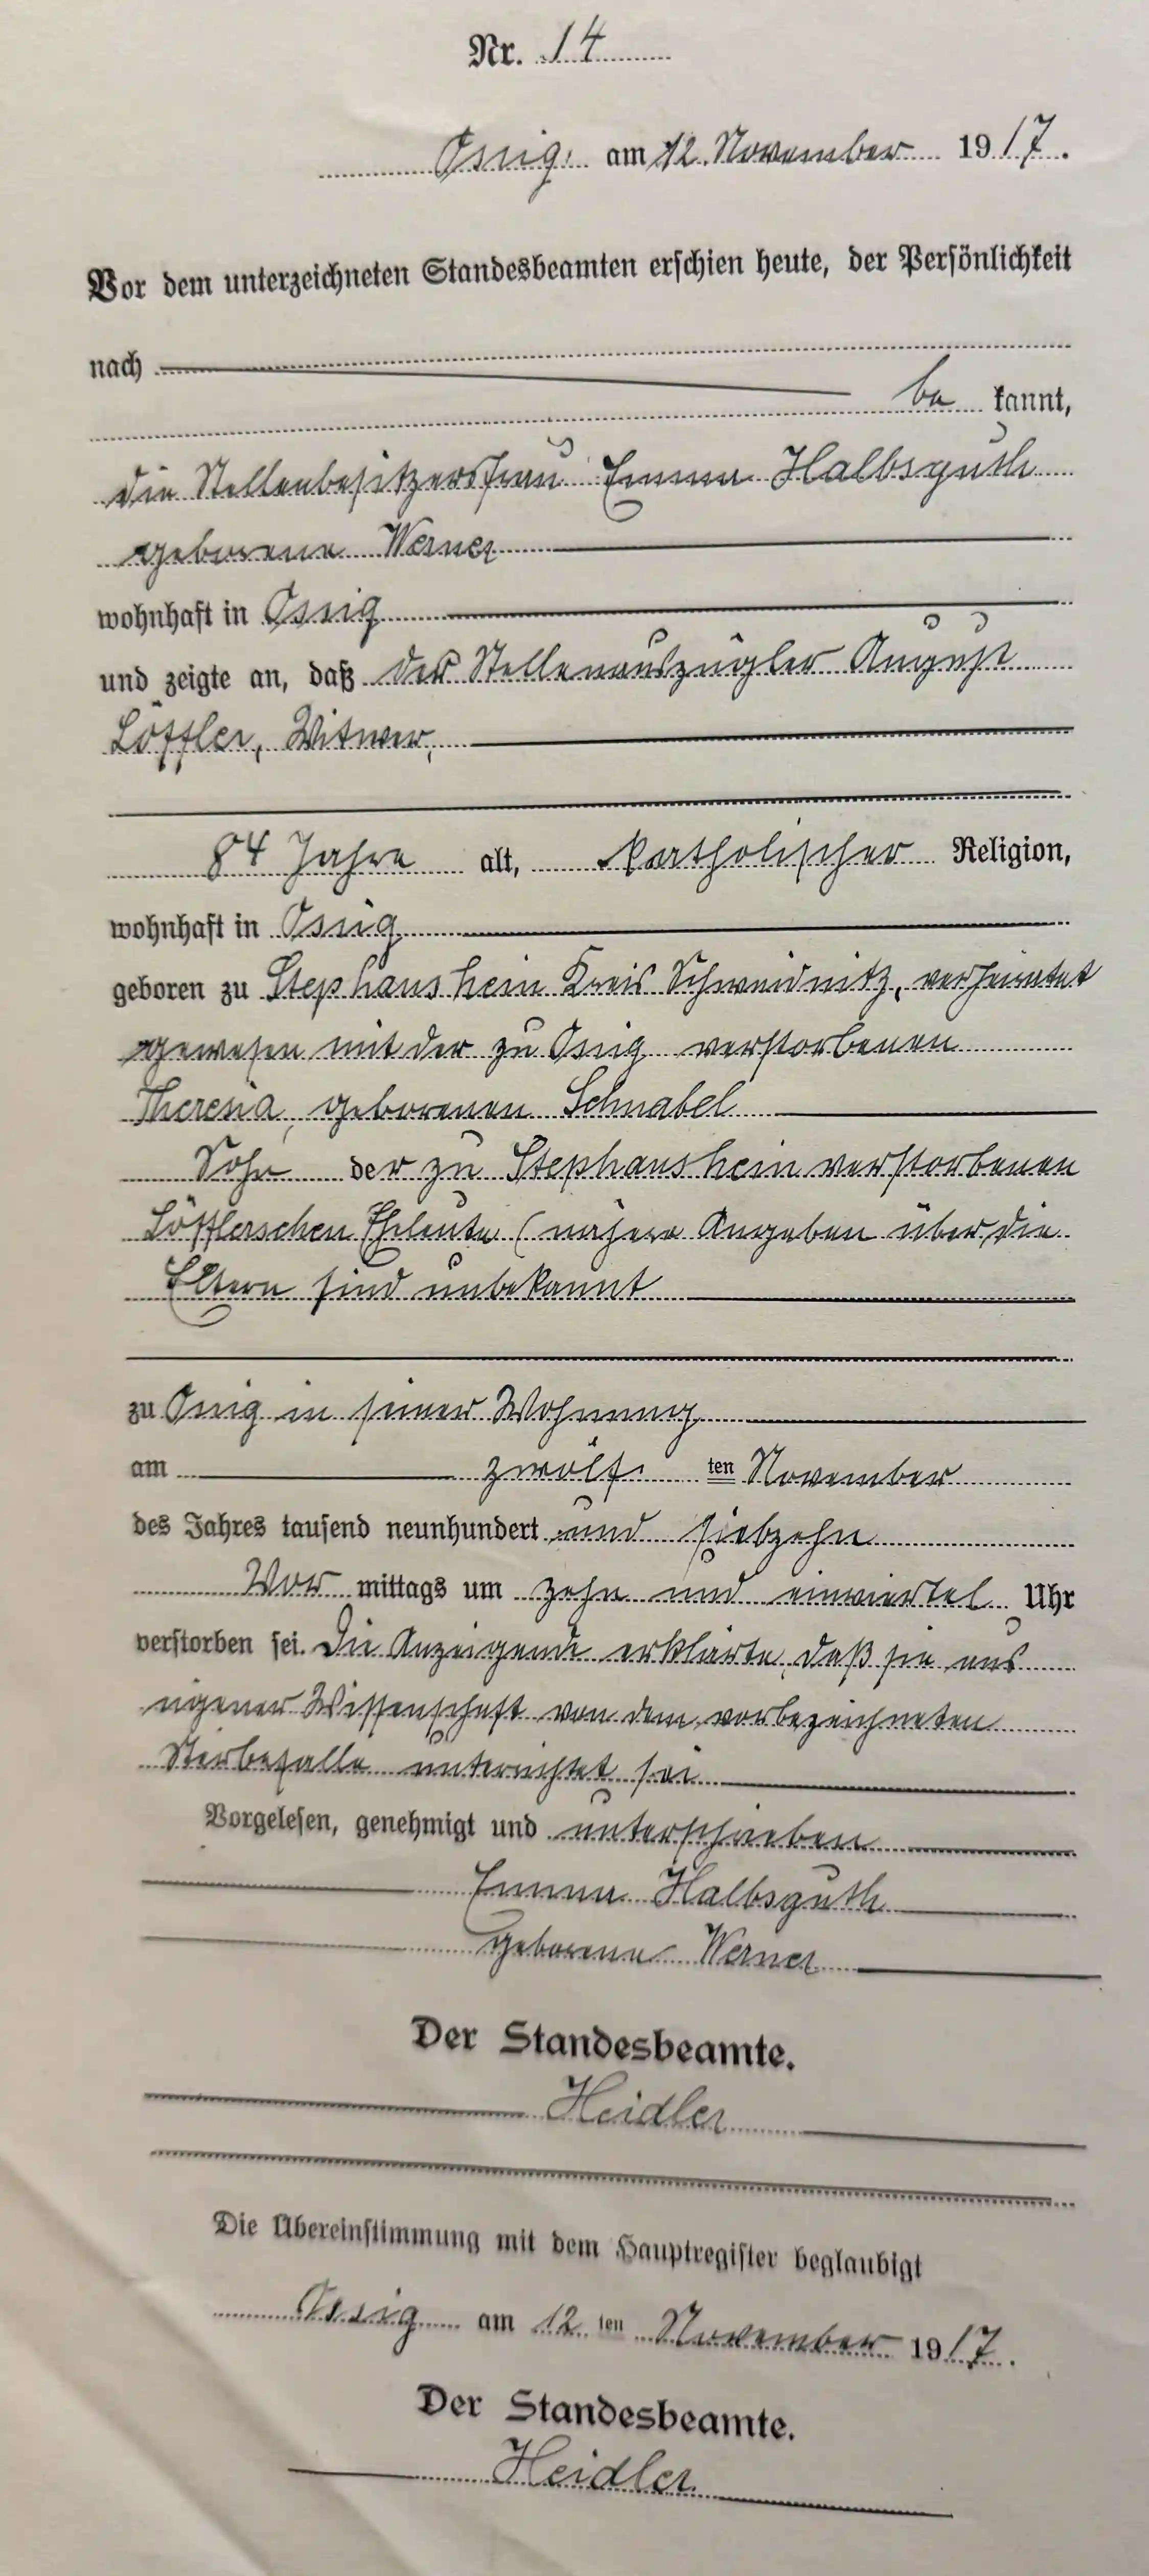 Nr. 14
Ossig am 12. November 1917.
Vor dem unterzeichneten Standesbeamten erschien heute, der Persönlichkeit
nach
be kannt,
die Stellenbesitzersfrau Emma Halbsguth
geborene Werner
wohnhaft in Ossig
und zeigte an, daß der Stellenauszügler August
Löffler, Witwer,
84 Jahre alt, katholischer Religion,
wohnhaft in Ossig
geboren zu Stephanshein Kreis Schweidnitz, verheiratet
gewesen mit der zu Ossig verstorbenen
Theresia, geborenen Schnabel
Sohn der zu Stephanshein verstorbenen
Löfflerschen Eheleute (nähere Angaben über die
Eltern sind unbekannt
zu Ossig in seiner Wohnung
am zwölf ten November
des Jahres tausend neunhundert und siebzehn
Vor mittags um zehn und einviertel Uhr
verstorben sei. Die Anzeigende erklärte, daß sie aus
eigener Wissenschaft von dem vorbezeichneten
Sterbefalle unterrichtet sei
Vorgelesen, genehmigt und unterschrieben
Emma Halbsguth
geborene Werner
Der Standesbeamte.
Heidler
Die Übereinstimmung mit dem Hauptregister beglaubigt
Ossig am 12 ten November 1917.
Der Standesbeamte.
Heidler